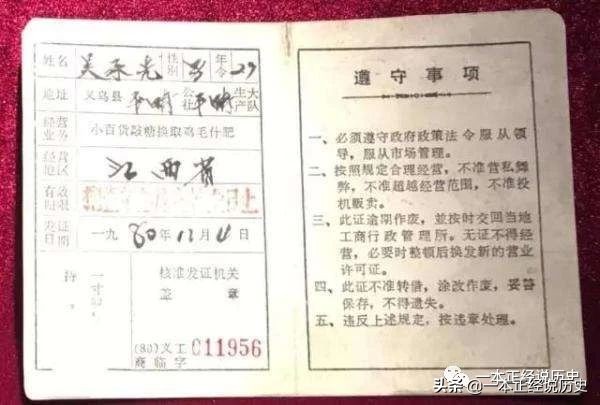 姓名 吴承先 性别 男 年令 29
地址 义乌县 平畴 公社 平畴 生产大队
经营业务 小百货敲糖换取鸡毛什肥
经营地区 江西省
有效期限
发证日期 一九80年12月4日
持
一寸
核准发证机关
签 章
(80)义工商临字 011956
遵守事项
一、必须遵守政府政策法令服从领
导，服从市场管理。
二、按照规定合理经营，不准营私舞
弊，不准超越经营范围，不准投
机贩卖。
三、此证逾期作废，並按时交回当地
工商行政管理所。无证不得经
营，必要时整顿后换发新的营业
许可证。
四、此证不准转借，涂改作废，妥善
保存，不得遗失。
五、违反上述规定，按违章处理。
一本正经说历史
头条 @一本正经说历史